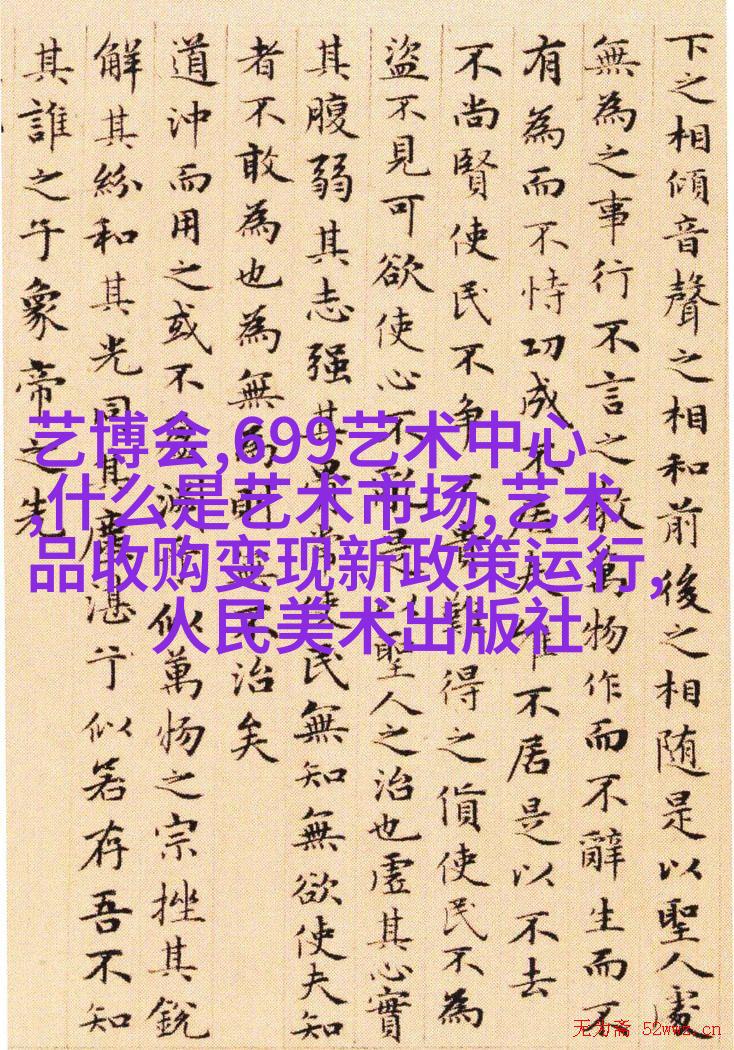 下之相傾音聲之相和前後之相随是以聖人處
無為之事行不言之教萬物作而不辭生而不
有為而不恃功成不居夫唯不居是以不去
不尚賢使民不争不貴難得之貨使民不為
盜不見可欲使心不亂是以聖人之治也虛其心實
其腹弱其志强其骨常使民無知無欲使夫知
者不敢為也為無為則無不治矣
道沖而用之或不盈淵乎似萬物之宗挫其銳
解其紛和其光同其塵湛兮似若存吾不知
其誰之子象帝之先
艺博会,699艺术中心
,什么是艺术市场,艺术
品收购变现新政策运行,
人民美术出版社
无为斋 52wwz.cn